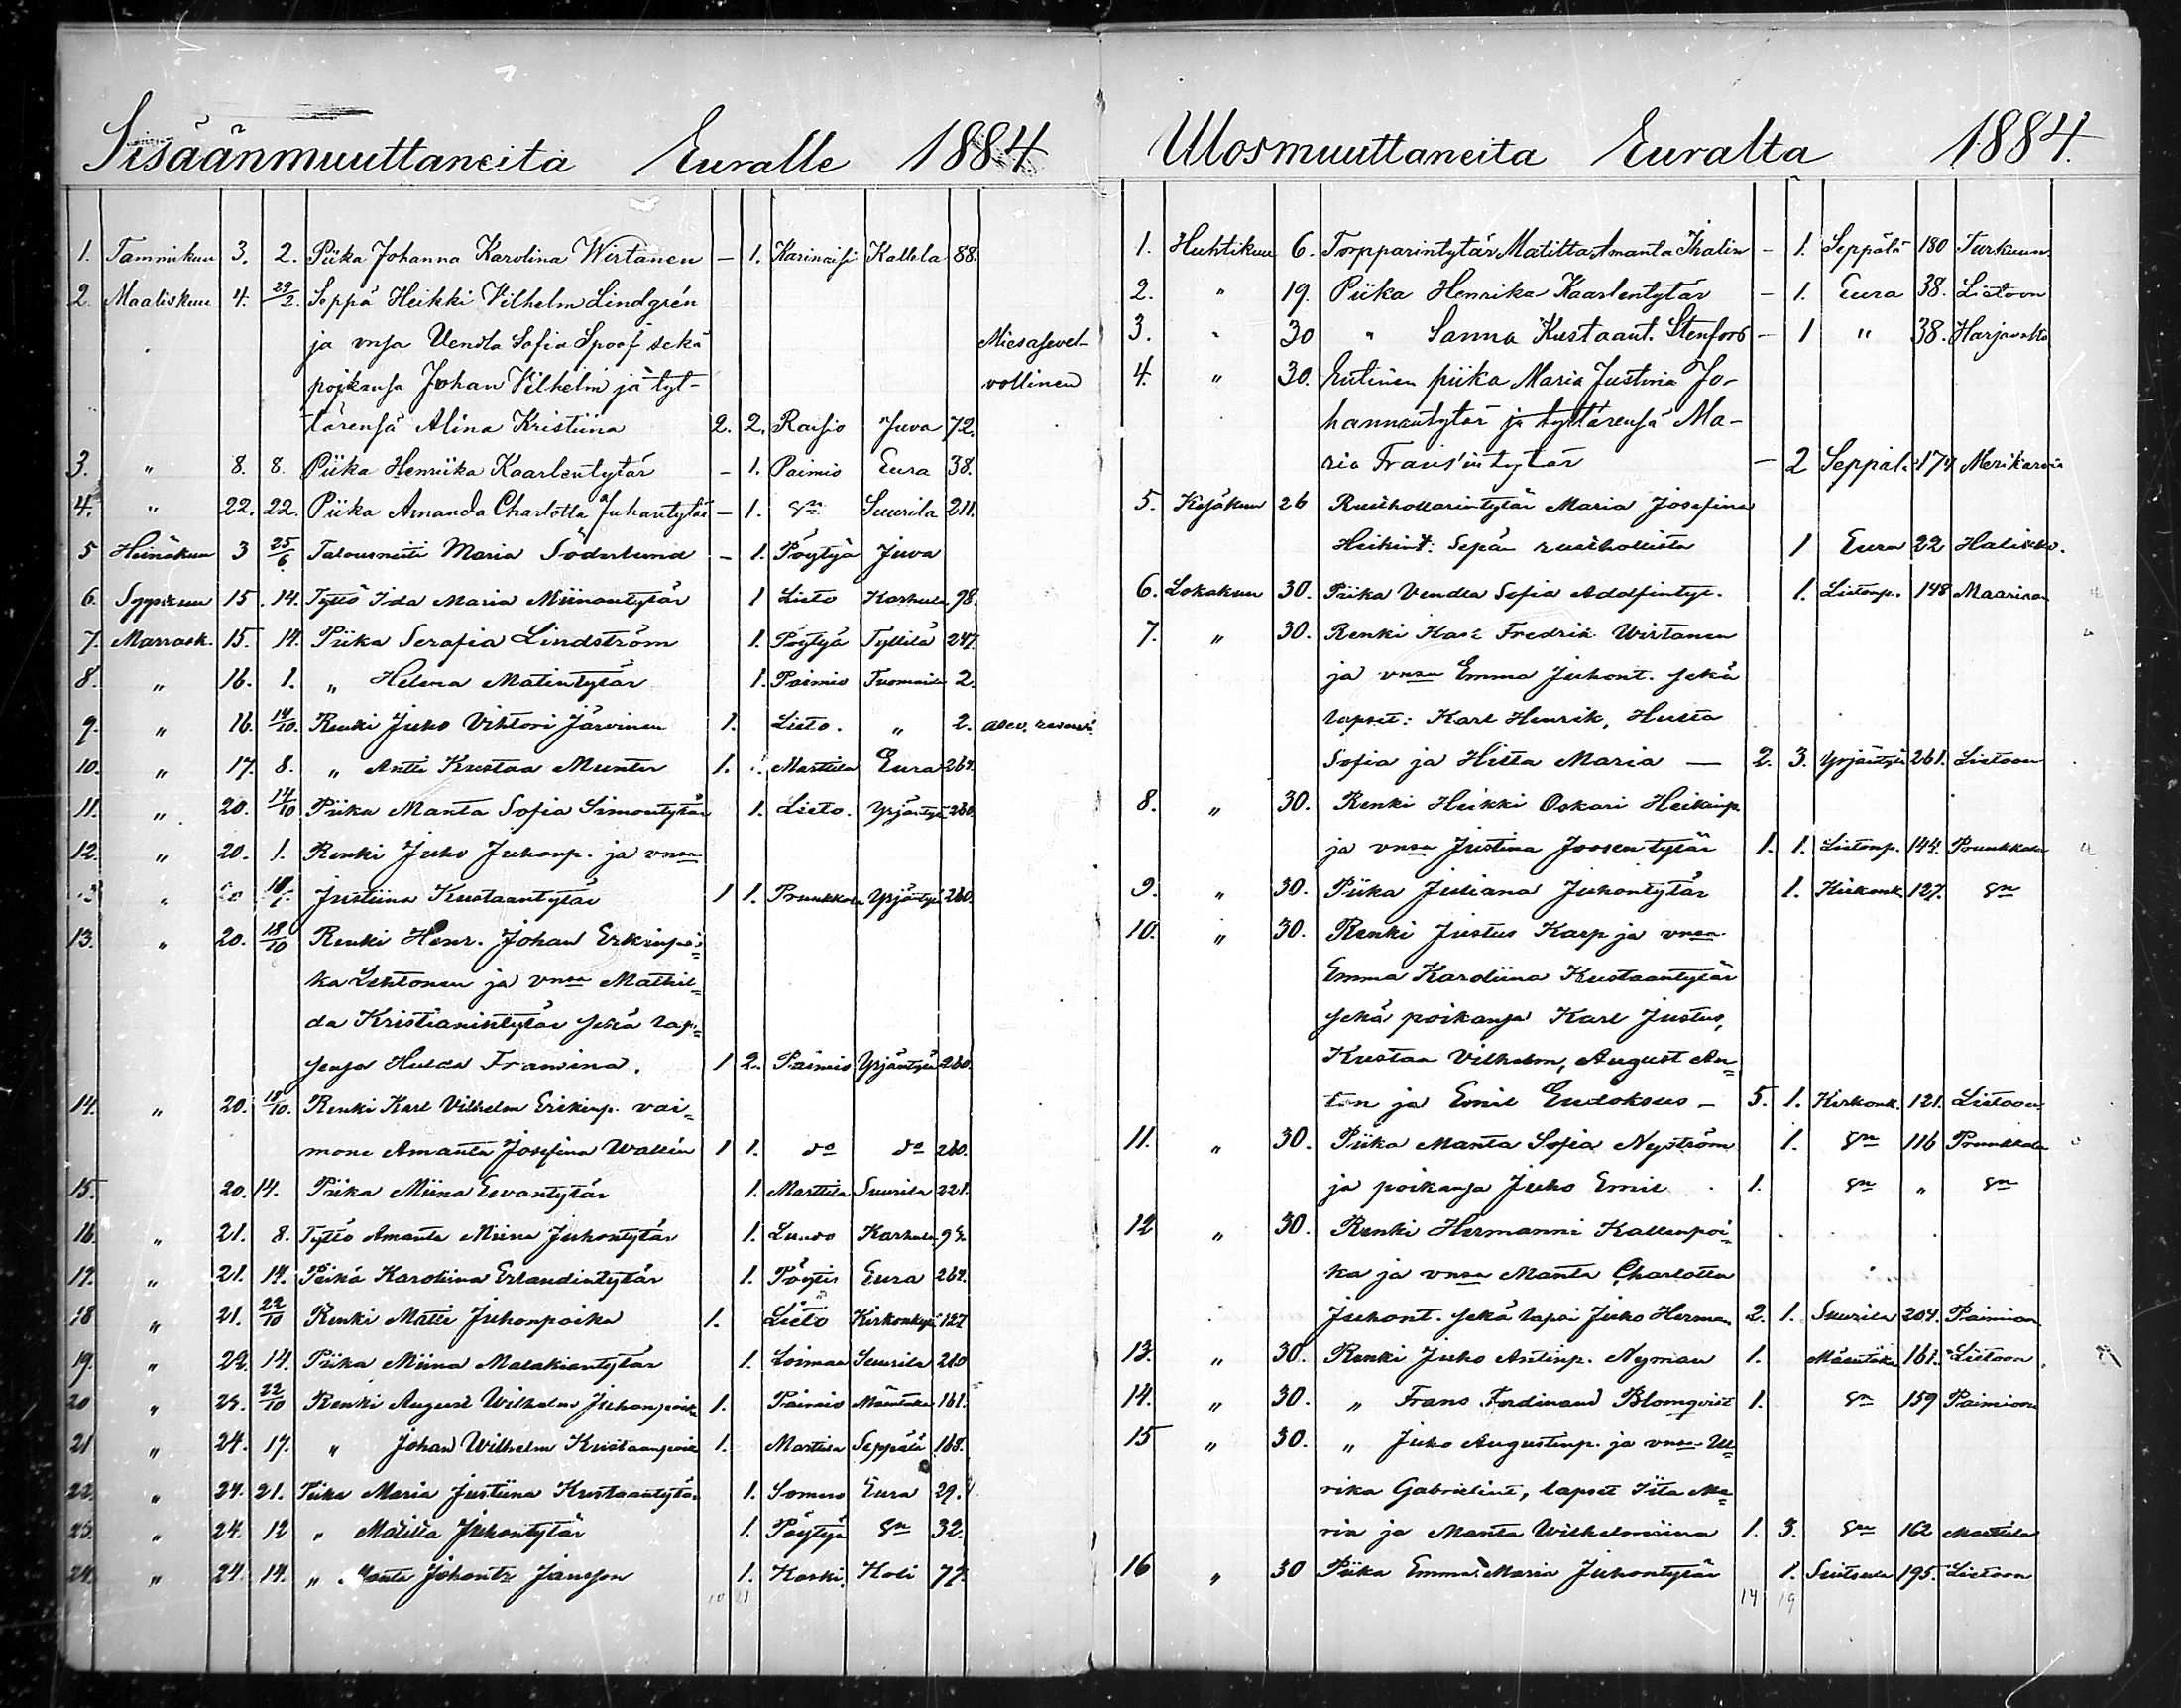 Sisäänmuuttaneita Euralle 1884.
1. Tammikuu 3. 2. Piika Johanna Karolina Wirtanen — 1. Karinaisi Kallela 88.
2. Maaliskuu 4. 29/2. Seppä Heikki Vilhelm Lindgrén
ja vnsa Vendla Sofia Spoof sekä Miesasevel-
poikansa Johan Vilhelm ja tyt- vollinen
tärensä Alina Kristiina 2. 2. Raisio Juva 72.
3. " 8. 8. Piika Henriika Kaarlentytär — 1. Paimio Eura 38.
4. " 22. 22. Piika Amanda Charlotta Juhantytär — 1. Suurila 211.
5 Heinäkuu 3 25/6 Talousneiti Maria Söderlund — 1. Pöytyä Juva
6. Syyskuu 15. 14. Tyttö Ida Maria Miinantytär 1 Lieto Karhula 98.
7. Marrask. 15. 14. Piika Serafia Lindström 1. Pöytyä Tyllilä 247.
8. " 16. 1. " Helena Matintytär 1. Paimio 2.
9. " 16. 14/10. Renki Juho Vihtori Järvinen 1. Lieto. " 2.
10. " 17. 8. " Antti Kustaa Munter 1. Marttila Eura 264.
11. " 20. 14/10 Piika Manta Sofia Simontytär 1. Lieto. Yrjäntylä 260.
12. " 20. 1. Renki Juho Juhonp. ja vnsa
" Justiina Kustaantytär 1 1. Prunkkala Yrjäntylä 260.
13. " 20. 18/10 Renki Henr. Johan Erkinpoi=
ka Lehtonen ja vnsa Mathil=
da Kristianintytär sekä lap=
sensa Hulda Fransina. 1 2. Paimio Yrjäntylä 260.
14. " 20. 18/10. Renki Karl Vilhelm Erikinp. vai=
mone Amanta Josefina Wallin 1 1. do do 260.
15. 20. 14. Piika Miina Eevantytär 1. Marttila Suurila 221.
16. " 21. 8. Tyttö Amanta Miina Juhontytär 1. Karhula
17. " 21. 14. Piika Karoliina Erlandintytär 1. Pöytis Eura 264.
18 " 21. 22/10 Renki Matti Juhonpoika 1. Lieto Kirkonkylä 127
19. " 22. 14. Piika Miina Malakiantytär 1. Loimaa Suurila 210
20 " 22/10 Renki August Wilhelm Juhonpoika 1. Paimio Mäentaka 161.
21 " 24. 17. " Johan Wilhelm Kustaanpoik 1. Marttila Seppälä 168.
22. " 24. 21. Piika Maria Justiina Kustaantytär 1. Somero Eura 29.
23. " 24. 12 " Matilta Juhontytär 1. Pöytyä 32.
24. " 24. 14. " Manta Johantr Jansson 1. Koski Koli 77.
10 21
Ulosmuuttaneita Euralta 1884.
1. Huhtikuu 6. Torpparintytär Matilta Amanta Thalin — 1. Seppälä 180 Turkuun.
2. " 19. Piika Henrika Kaarlentytär — 1. Eura 38. Lietoon
3. " 30 " Sanna Kustaant. Stenfors — 1 " 38. Harjavalta
4. " 30. Entinen piika Maria Justina Jo-
hannentytär ja tyttärensä Ma-
ria Fransintytär — 2 Seppälä 174 Merikarvia
5. Kesäkuu 26 Rusthollarintytär Maria Josefina
Heikint: Sepän rusthollista 1 Eura 22 Halikko.
6. Lokakuu 30. Piika Vendla Sofia Adolfintyt. 1. Lietonp. 148 Maariaan
7. " 30. Renki Karl Fredrik Wirtanen
ja vnsa Emma Juhont. sekä
lapset: Karl Henrik, Hulta
Sofia ja Hilta Maria — 2. 3. Yrjäntylä 261. Lietoon
8. " 30. Renki Heikki Oskari Heikinp.
ja vnsa Justina Joosentytär 1. 1. Lietonp. 144. Prunkkala
9. " 30. Piika Juliana Juhontytär 1. Kirkonk. 127.
10. " 30. Renki Justus Karp ja vnsa
Emma Karoliina Kustaantytär
sekä poikansa Karl Justus,
Kustaa Vilhelm, August An=
ton ja Emil Eudoksus — 5. 1. Kirkonk. 121. Lietoon.
11. " 30. Piika Manta Sofia Nyström 1. 116 Prunkkala
ja poikansa Juho Emil 1. "
12 " 30. Renki Hermanni Kallenpoi=
ka ja vnsa Manta Charlotta
Juhont. sekä lapsi Juho Herman 2. 1. Suurila 204. Paimioon
13. " 30. Renki Juho Antinp. Nyman 1. Mäentaka 161. Lietoon.
14. " 30. " Frans Ferdinand Blomqvist 1. 159 Paimioon
15 " 30. " Juho Augustinp. ja vnsa Ul=
rika Gabrielint, lapset Iita Ma=
ria ja Manta Wilhelmiina 1. 3. 162 Marttila
16 " 30 Piika Emma Maria Juhontytär 1. 195. Lietoon
14 19